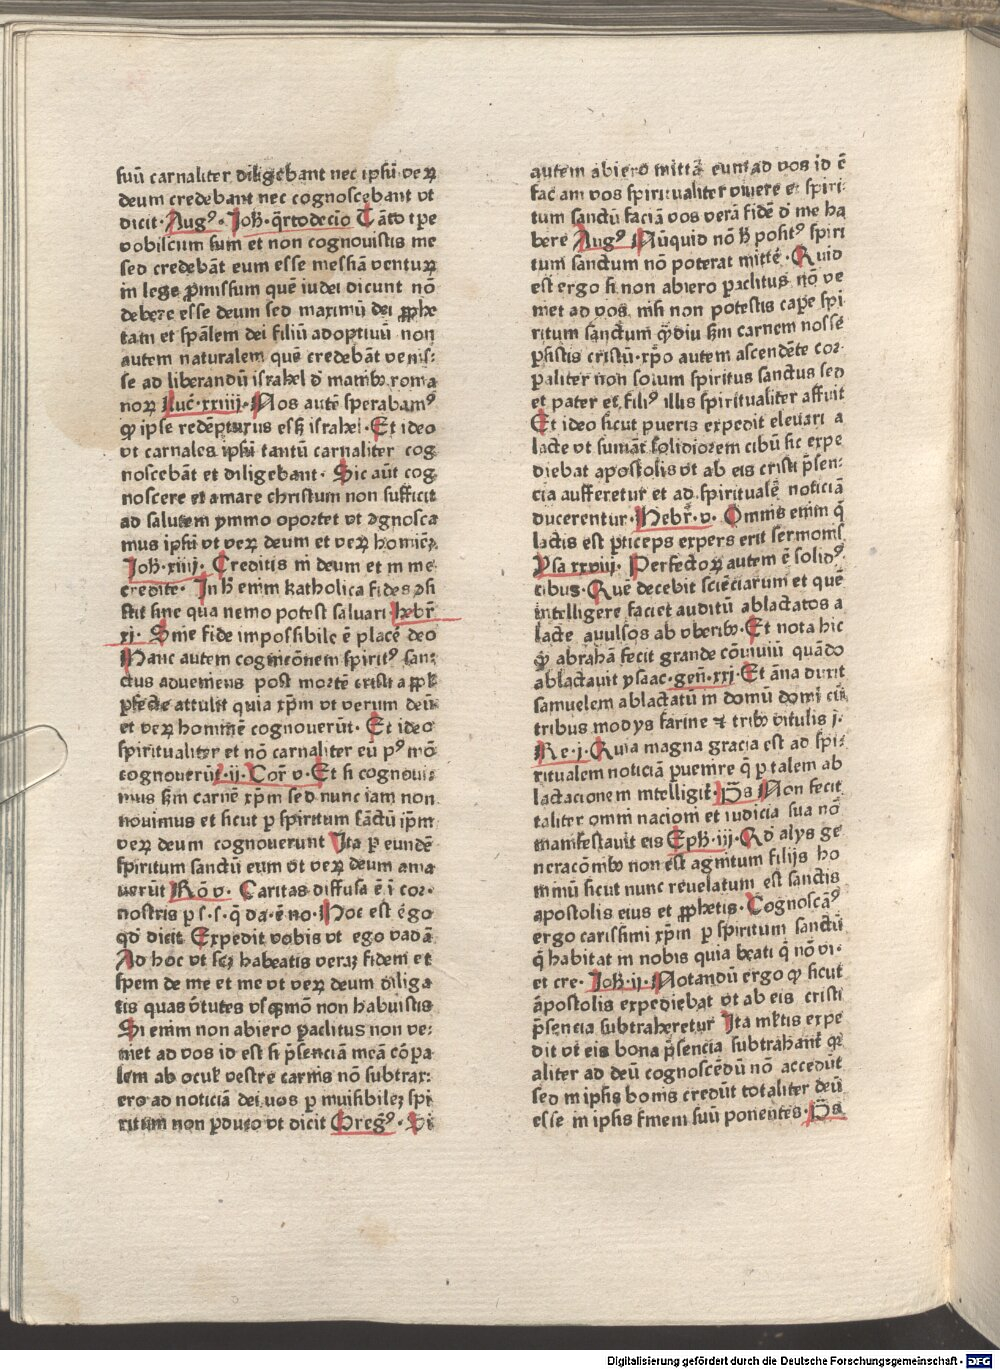 suū carnaliter diligebant nec ipsū veꝝ
deum credebant nec cognoscebant vt
dicit·Augꝰ·Joh̄·q̄rtodecīo Tāto tꝑe
vobiscum sum et non cognouistis me
sed credebāt eum esse messiā venturꝝ
in lege ꝓmissum quē iudei dicunt nō
debere esse deum sed maximū dei ꝓphe
tam et spālem dei filiū adoptiuū non
autem naturalem quē credebāt venis-
se ad liberandū israhel d̄ manibꝫ roma
noꝝ Luc̄·xxiiij·Nos autē sperabamꝰ
ꝙ ipse redēpturus esset israhel·Et ideo
vt carnales ipsū tantū carnaliter cog
noscebāt et diligebant·Sic aūt cog
noscere et amare christum non sufficit
ad salutem ymmo oportet vt ꝯgnosca
mus ipsū vt veꝝ deum et veꝝ hominē·
Joh̄·xiiij·Creditis in deum et in me
credite·In h̄ enim katholica fides ꝯsi
stit sine qua nemo potest saluari hebr̄
xj·Sine fide impossibile ē placē deo
Hanc autem cognicōnem spiritꝰ san-
ctus adueniens post mortē cristi a ꝓph
ꝑfecte attulit quia xp̄m vt verum deū
et veꝝ hominē cognouerūt·Et ideo
spiritualiter et nō carnaliter eū pꝰ mō
cognouerūt·ij·Cor̄ v·Et si cognoui-
mus scd̄m carnē xp̄m sed nunc iam non
nouimus et sicut ꝑ spiritum sāctū ip̄m
veꝝ deum cognouerunt Ita ꝑ eundē
spiritum sanctū eum vt veꝝ deum ama
uerūt Rō v·Caritas diffusa ē ī cor·
nostris ꝑ s·s·q̄ da·ē no·Hoc est ergo
qd̄ dicit Expedit vobis vt ego vadā
Ad hoc vt scꝫ habeatis veraꝫ fidem et
spem de me et me vt veꝝ deum diliga
tis quas v̄tutes vsqꝫmō non habuistis
Si enim non abiero ꝑaclitus non ve-
niet ad vos id est si p̄senciā meā cōꝑa
lem ab ocul̄ vestre carnis nō subtrax-
ero ad noticiā dei vos ꝑ inuisibileꝫ spi
ritum non ꝑduco vt dicit Gregꝰ·Si
autem abiero mittā eum ad vos id ē
faciam vos spiritualiter viuere et spiri-
tum sanctū faciā vos verā fidē d̄ me ha
bere Augꝰ Nūquid nō h̄ positꝰ spiri
tum sanctum nō poterat mittē·Quid
est ergo si non abiero ꝑaclitus nō ve
niet ad vos nisi non potestis capꝑe spi
ritum sanctum q̄mdiu scd̄m carnem nosse
ꝑsistis cristū·xp̄o autem ascendēte cor
ꝑaliter non solum spiritus sanctus sed
et pater et filiꝰ illis spiritualiter affuit
Et ideo sicut pueris expedit eleuari a
lacte vt sumāt solidiorem cibū sic expe
diebat apostolis vt ab eis cristi p̄sen-
cia aufferetur et ad spiritualē noticiā
ducerentur·Hebr̄·v·Omnis enim q̄
lactis est ꝑticeps expers erit sermonis
Ysa xxviij·Perfectoꝝ autem ē solidꝰ
cibus·Quē decebit scienciarum et quē
intelligere faciet auditū ablactatos a
lacte auulsos ab vberibꝫ·Et nota hic
ꝙ abrahā fecit grande cōuiuiū quādo
ablactauit ysaac·gen̄·xxj·Et āna duxit
samuelem ablactatū in domū domī cū
tribus modys farine ⁊ tribꝫ vitulis j·
Re·j·Quia magna gracia est ad spi-
ritualem noticiā puenire q̄ ꝑ talem ab
lactacionem intelligit̄·P̄s Non fecit
taliter omni nacioni et iudicia sua nō
manifestauit eis Eph̄·iij·Qd̄ alys ge
neracōnibꝫ non est agnitum filijs ho
minū sicut nunc reuelatum est sanctis
apostolis eius et ꝓphetis·Cognoscāꝰ
ergo carissimi xp̄m ꝑ spiritum sanctū
q̄ habitat in nobis quia beati q̄ nō vi·
et cre·Joh̄·ij·Notandū ergo ꝙ sicut
āpostolis expediebat vt ab eis cristi
p̄sencia subtraheretur Ita ml̄tis expe
dit vt eis bona p̄sencia subtrahant̄ qꝛ
aliter ad deū cognoscēdū nō accedūt
sed in ipsis bonis credūt totaliter deū
esse in ipsis finem suū ponentes·P̄s
Digitalisierung gefördert durch die Deutsche Forschungsgemeinschaft · DFG